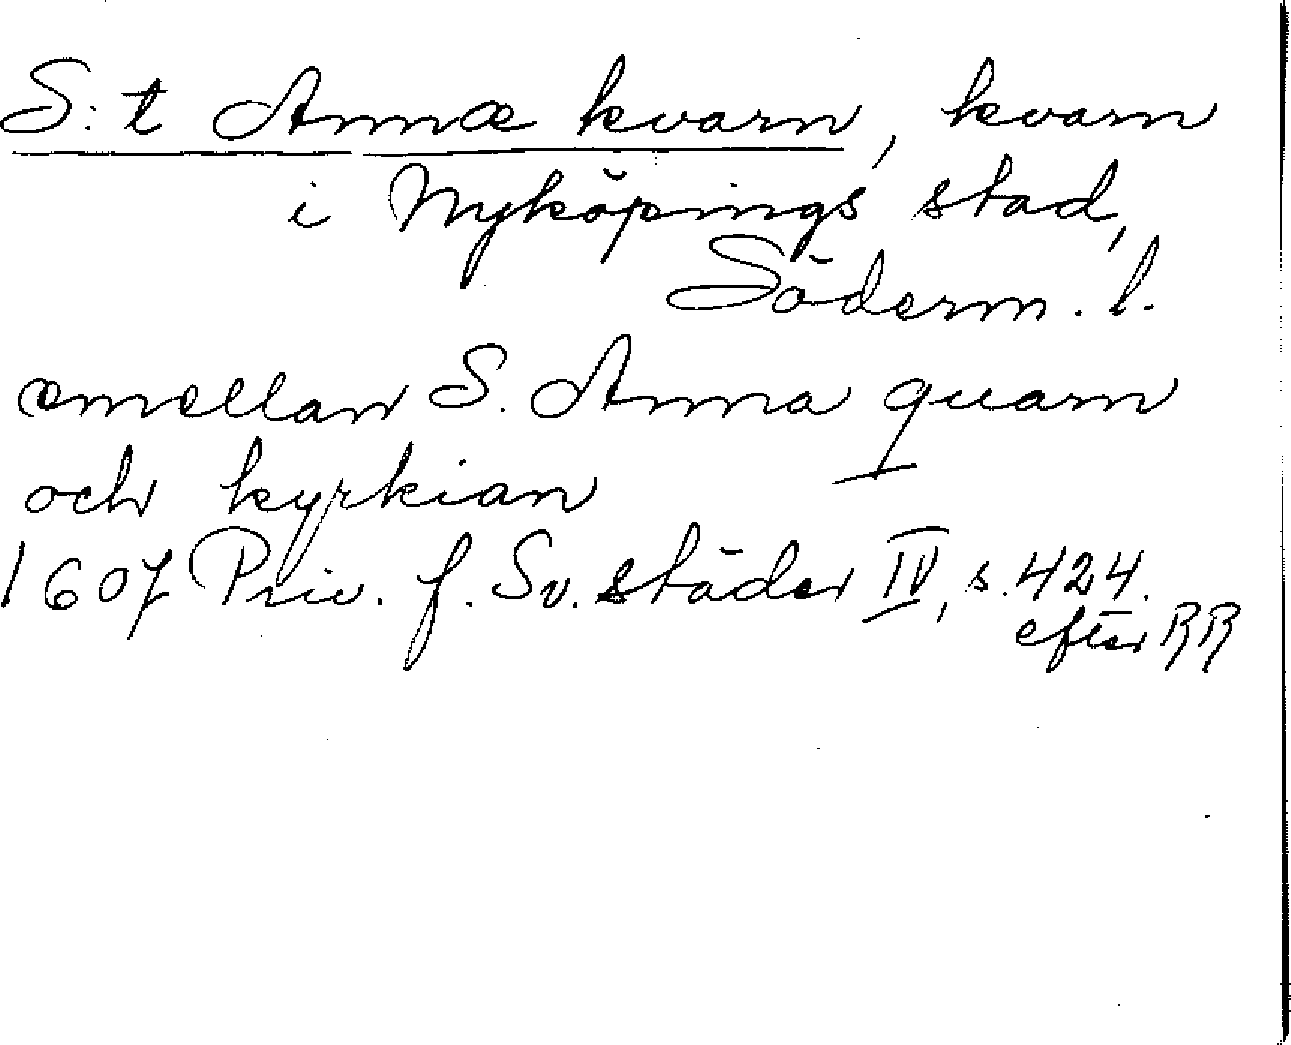 S:t Annæ kvarn, kvarn
i Nyköpings stad,
Söderm. l.
emellan S. Anna quarn
och kyrkian
1607 Priv. f. Sv. städer IV, s. 424.
efter RR